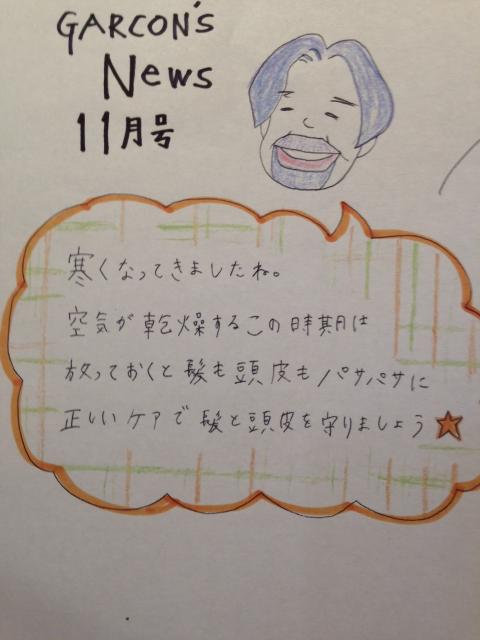 GARCON's
News
11月号
寒くなってきましたね。
空気が乾燥するこの時期は
放っておくと髪も頭皮もパサパサに
正しいケアで髪と頭皮を守りましょう